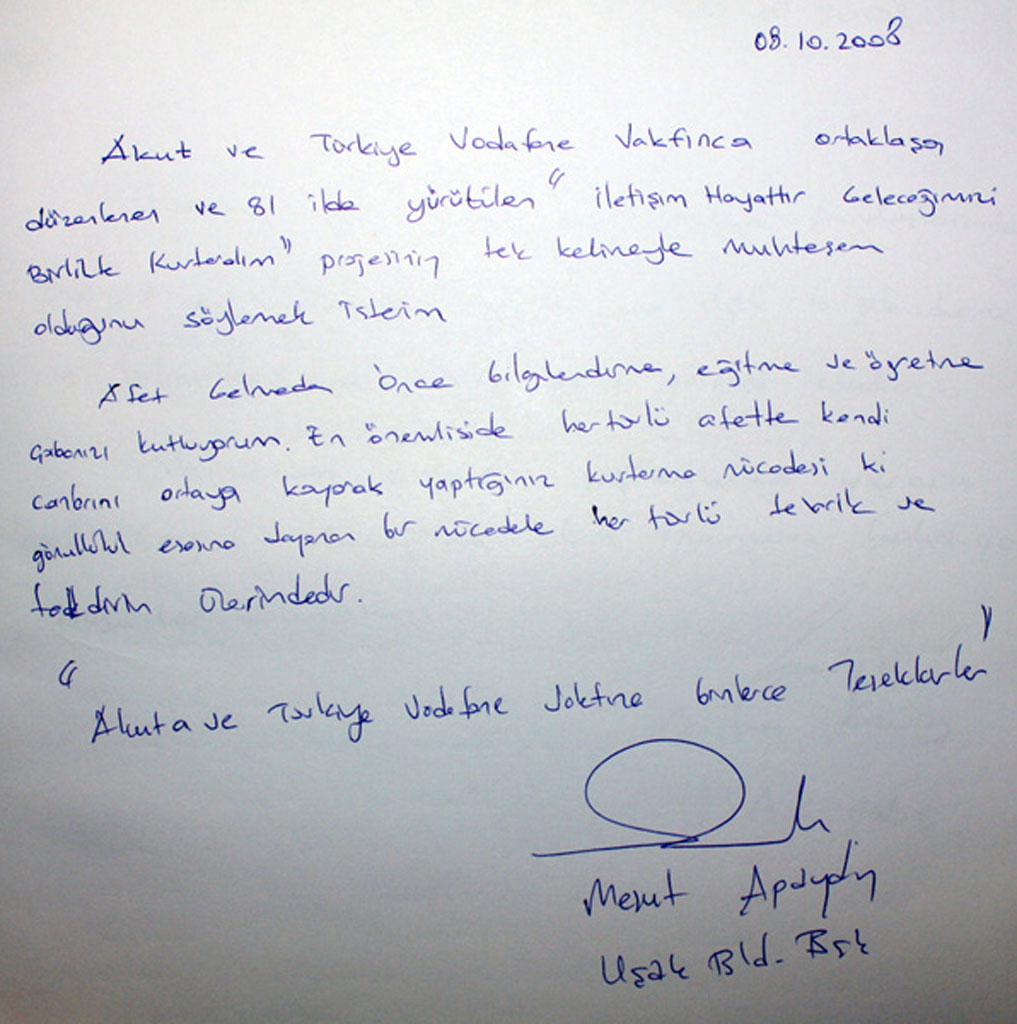 08.10.2008
Akut ve Türkiye Vodafone Vakfınca ortaklaşa
düzenlenen ve 81 ilde yürütülen " iletişim Hayattır Geleceğimizi
Birlikte Kurtaralım" projesinin tek kelimeyle muhteşem
olduğunu söylemek isterim
Afet Gelmeden Önce bilgilendirme, eğitme ve öğretme
çabanızı kutluyorum. En önemliside hertürlü afette kendi
canlarını ortaya koyarak yaptığınız kurtarma mücadelesi ki
gönüllülük esasına dayanan bir mücadele her türlü tebrik ve
takdirin üzerindedir.
" Akuta ve Türkiye Vodafone Vakfına binlerce Teşekkürler "
Mesut Apaydın
Uşak Bld. Bşk